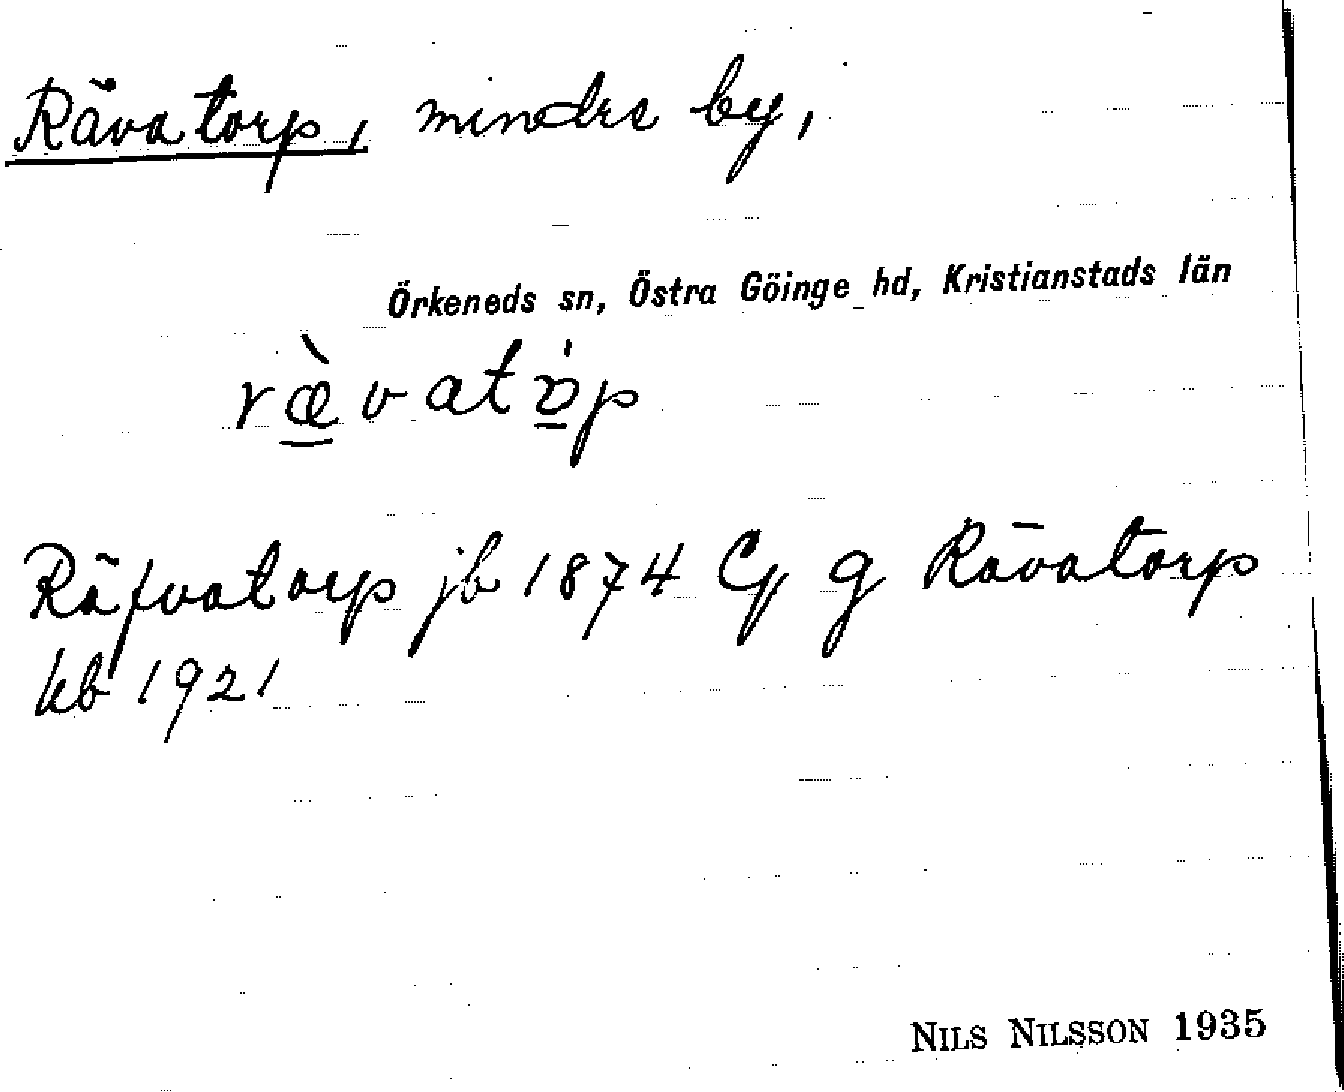 Rävatorp, mindre by,
Örkeneds sn, Östra Göinge hd, Kristianstads län
ræ̱̀vatɒ̱̍p
Räfvatorp jb 1874 g Rävatorp
kb 1921
NILS NILSSON 1935